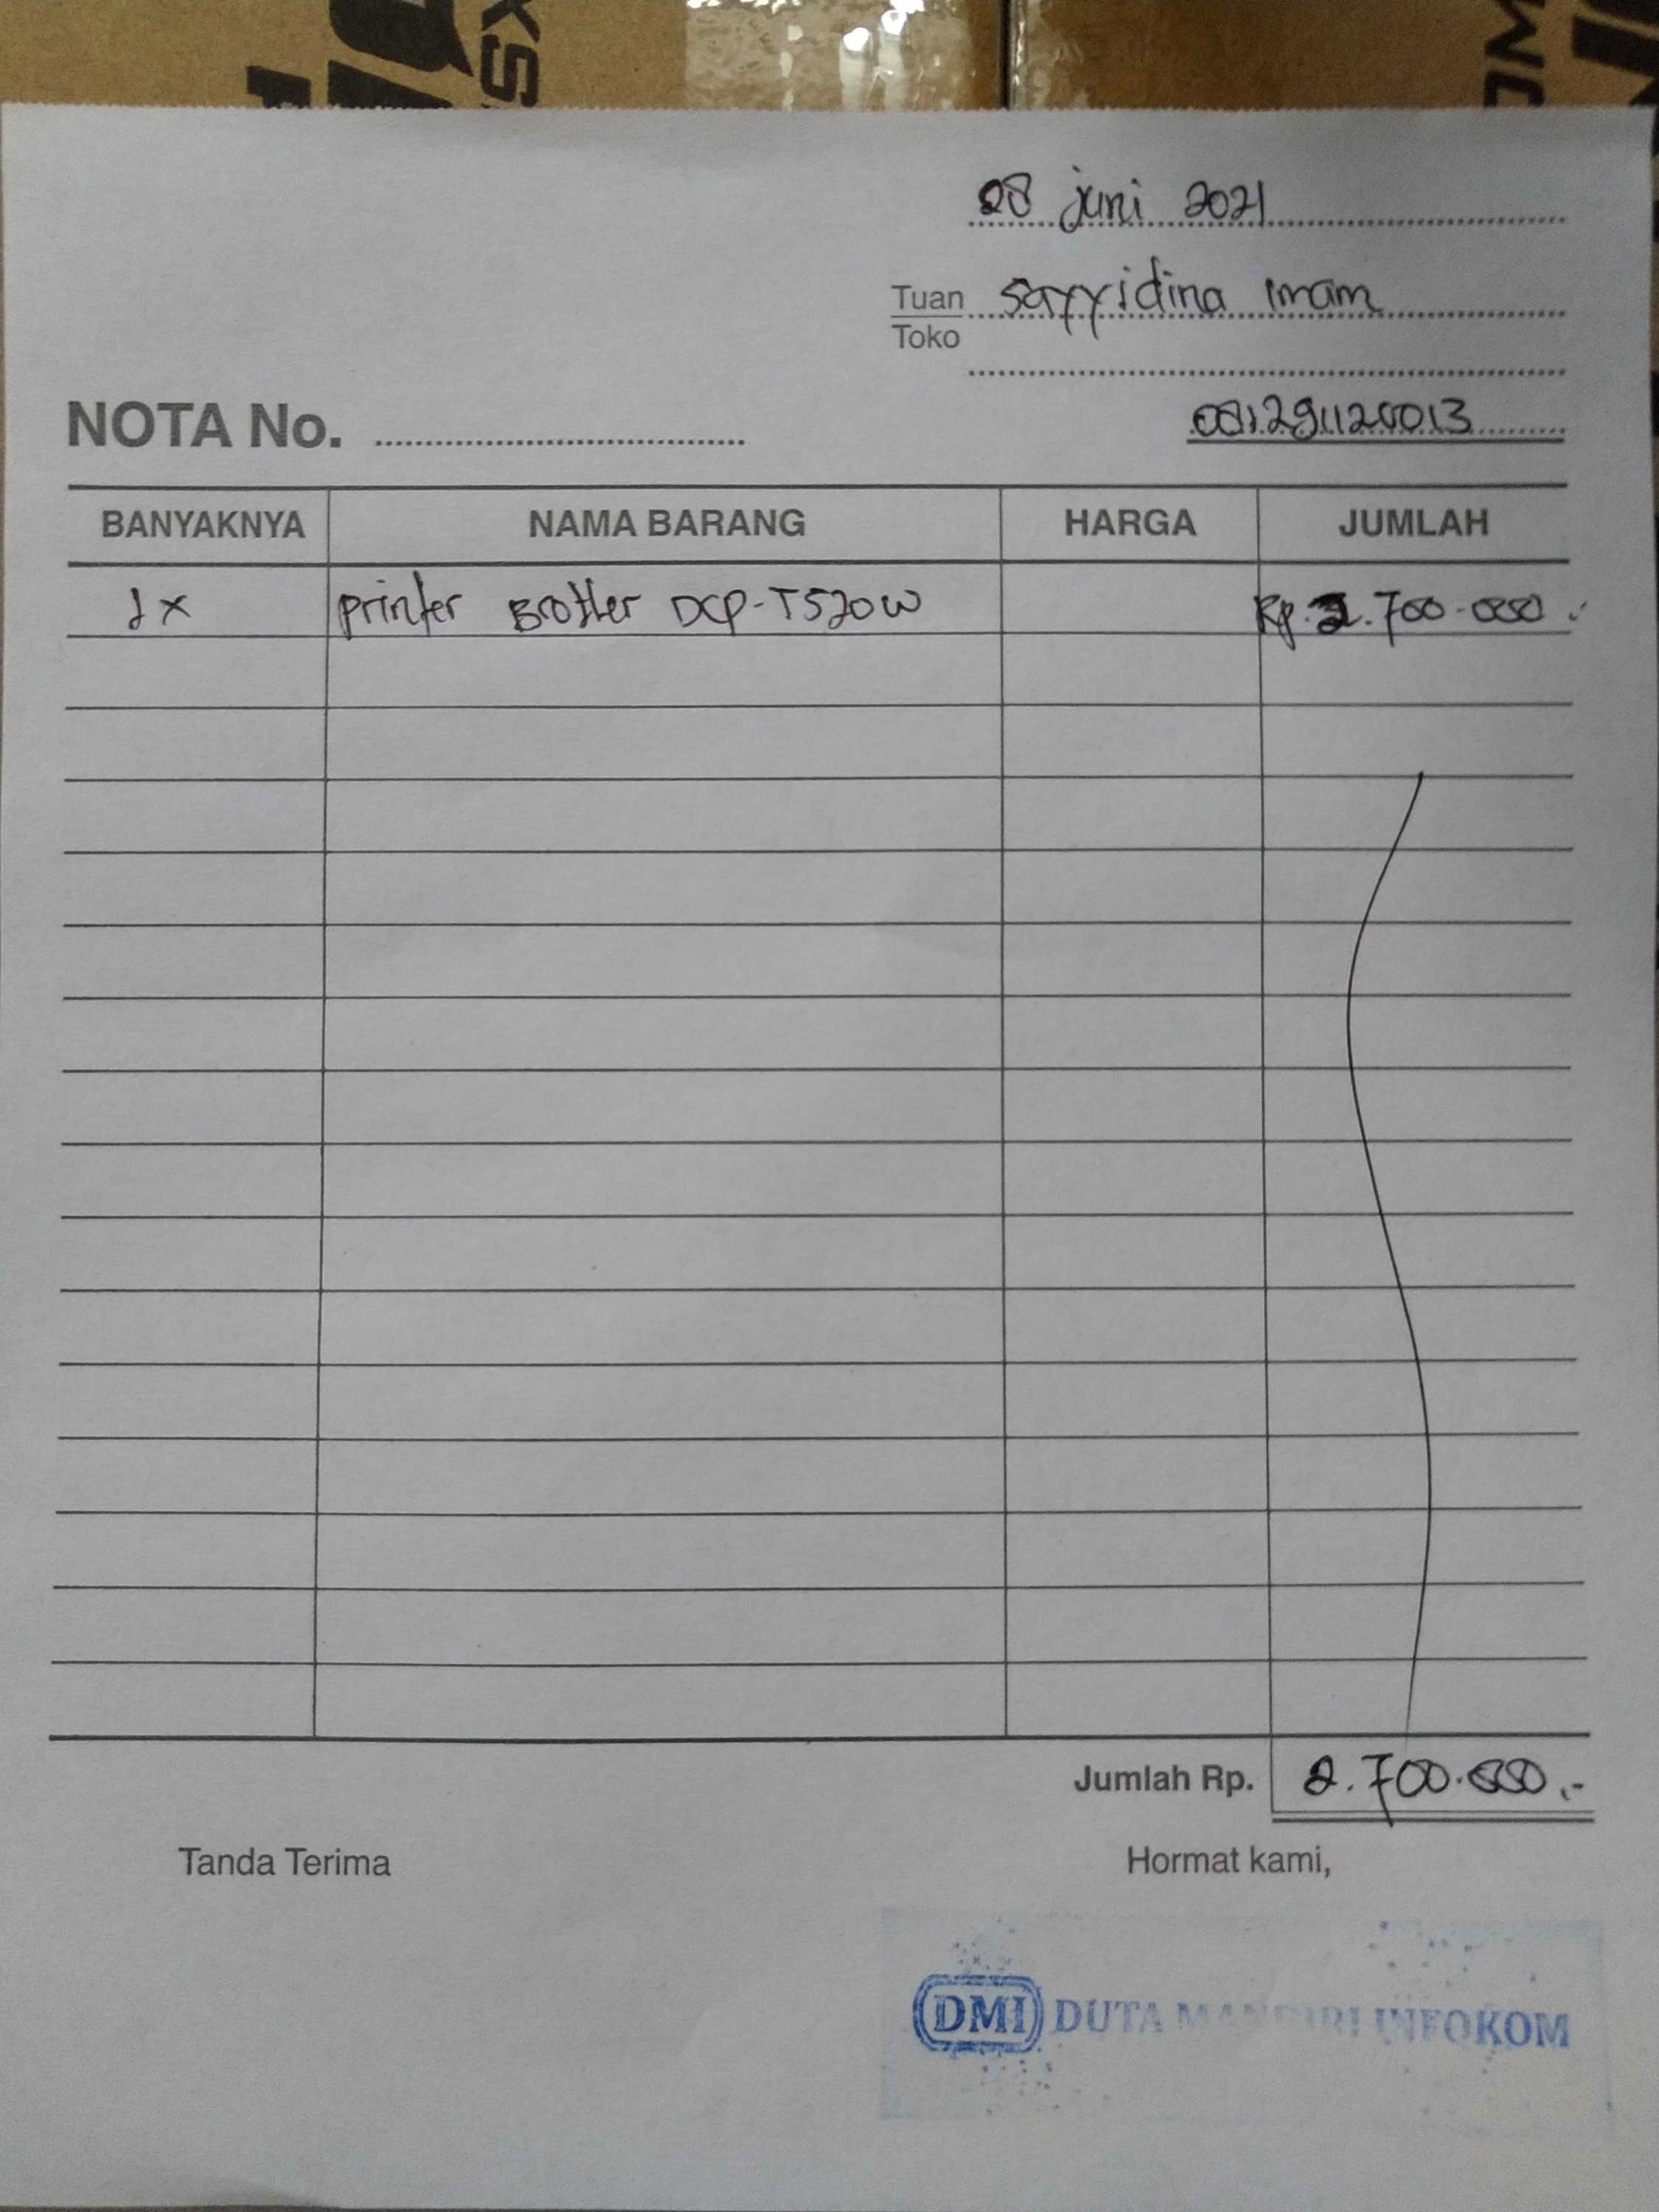 08 juni 2021
Tuan Sayyidina Imam
Toko
NOTA No.
081291120013
BANYAKNYA NAMA BARANG HARGA JUMLAH
1x printer Brother DCP-T520W Rp. 2.700.000.-
Jumlah Rp. 2.700.000.-
Tanda Terima Hormat kami,
DMI DUTA MANDIRI INFOKOM